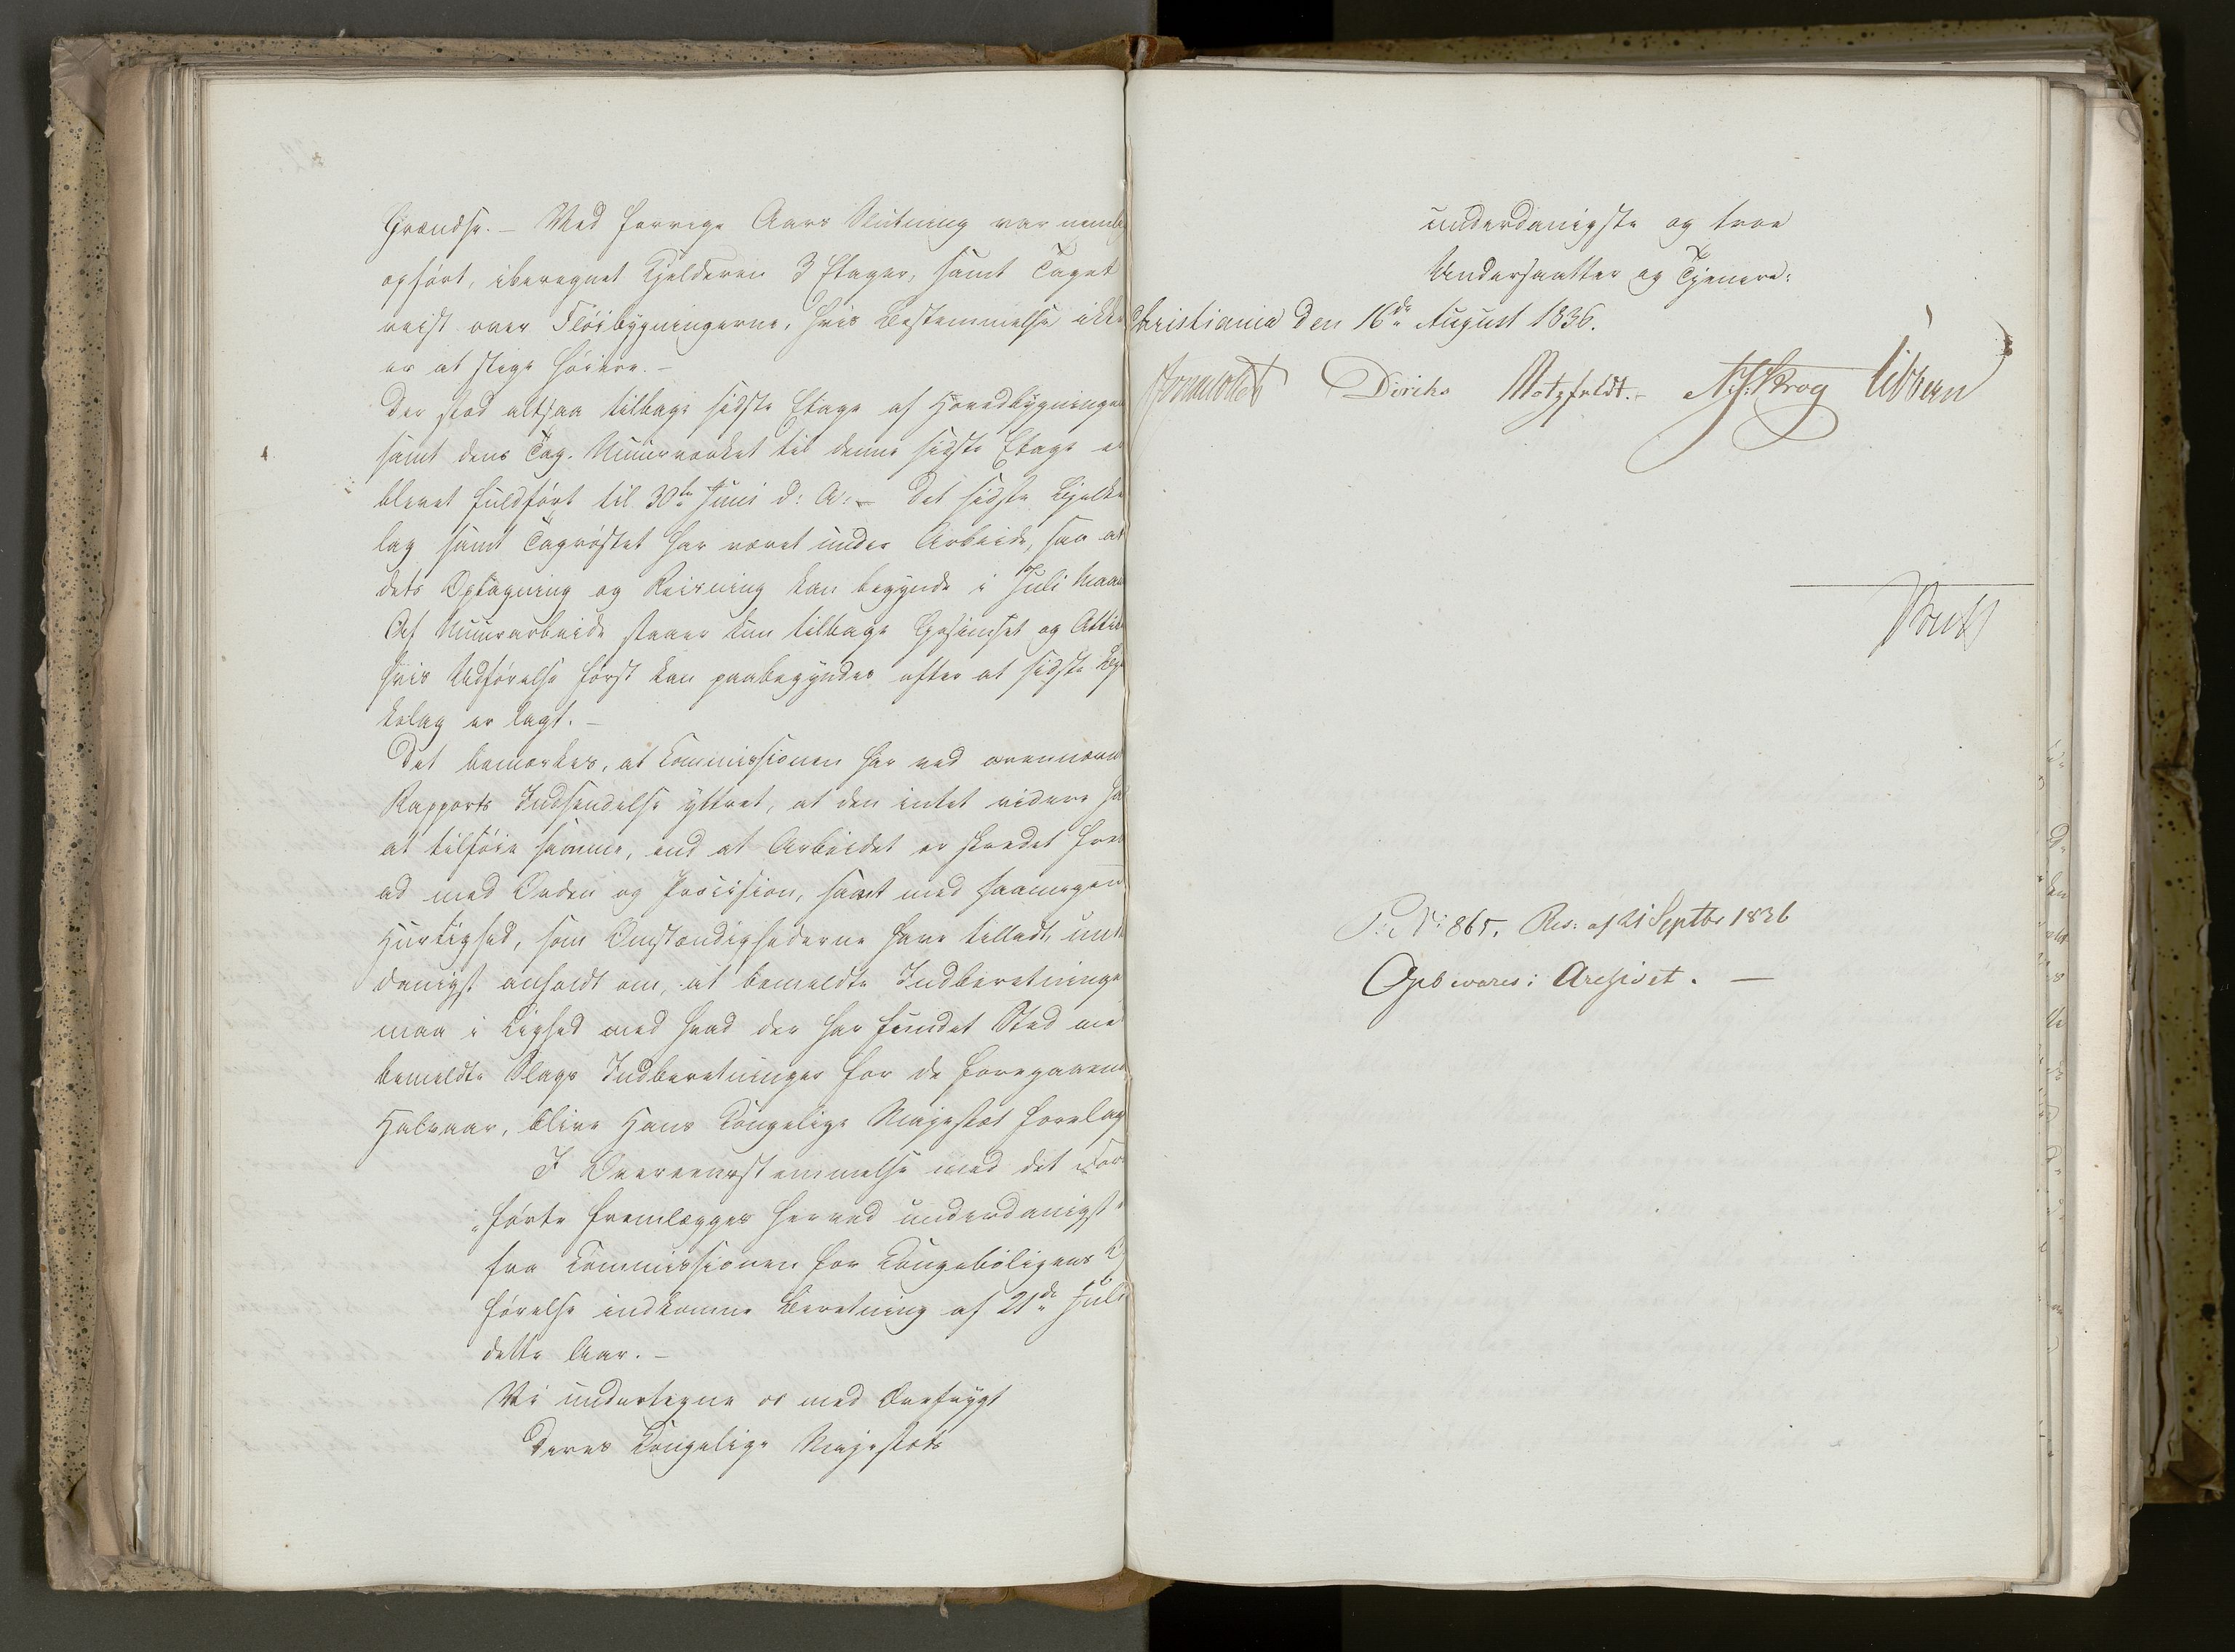 Grændse. – Ved forrige Aars Slutning var nemlig
opført, iberegnet Kjelderen 3 Etager, samt Taget
reist over Fløibygningerne, hvis Bestemmelse ikke
er at stige høiere. –
Der stod altsaa tilbage sidste Etage af Hovedbygningen
samt dens Tag. Muurværket til denne sidste Etage er
blevet fuldført til 30te Juni d: A: – Det sidste Bjelke
lag samt Tagrøstet har været under Arbeide, saa at
dets Optagning og Reisning kan begynde i Juli Maan
Af Muurarbeide staaer kun tilbage Gesimset og Attik
hvis Udførelse først kan paabegyndes efter at sidste Bjel
kelag er lagt. –
Det bemærkes, at Commissionen har ved ovennævn
Rapports Indsendelse yttret, at den intet videre ha
at tilføie samme, end at Arbeidet er skredet frem
ad med Orden og Precision, samt med saamegen
Hurtighed, som Omstændighederne have tilladt, und
danigst anholdt om, at bemeldte Indberetninge
maa i Lighed med hvad der har fundet Sted med
bemeldte Slags Indberetninger for de foregaaend
Halvaar, blive Hans Kongelige Majestæt forelag
I Overeensstemmelse med det For
førte fremlægges herved underdanigst
fra Commissionen for Kongeboligens
førelse indkomne Beretning af 21de Juli
dette Aar. –
Vi undertegne os med Ærefrygt
Deres Kongelige Majestæts
underdanigste og troe
Undersaatter og Tjenere:
Christiania den 16de August 1836.
Diriks Motzfeldt. – N: J: Krog Vibe
P: N: 865. Res: af 21 Septbr 1836
Opbevares i Archivet. –